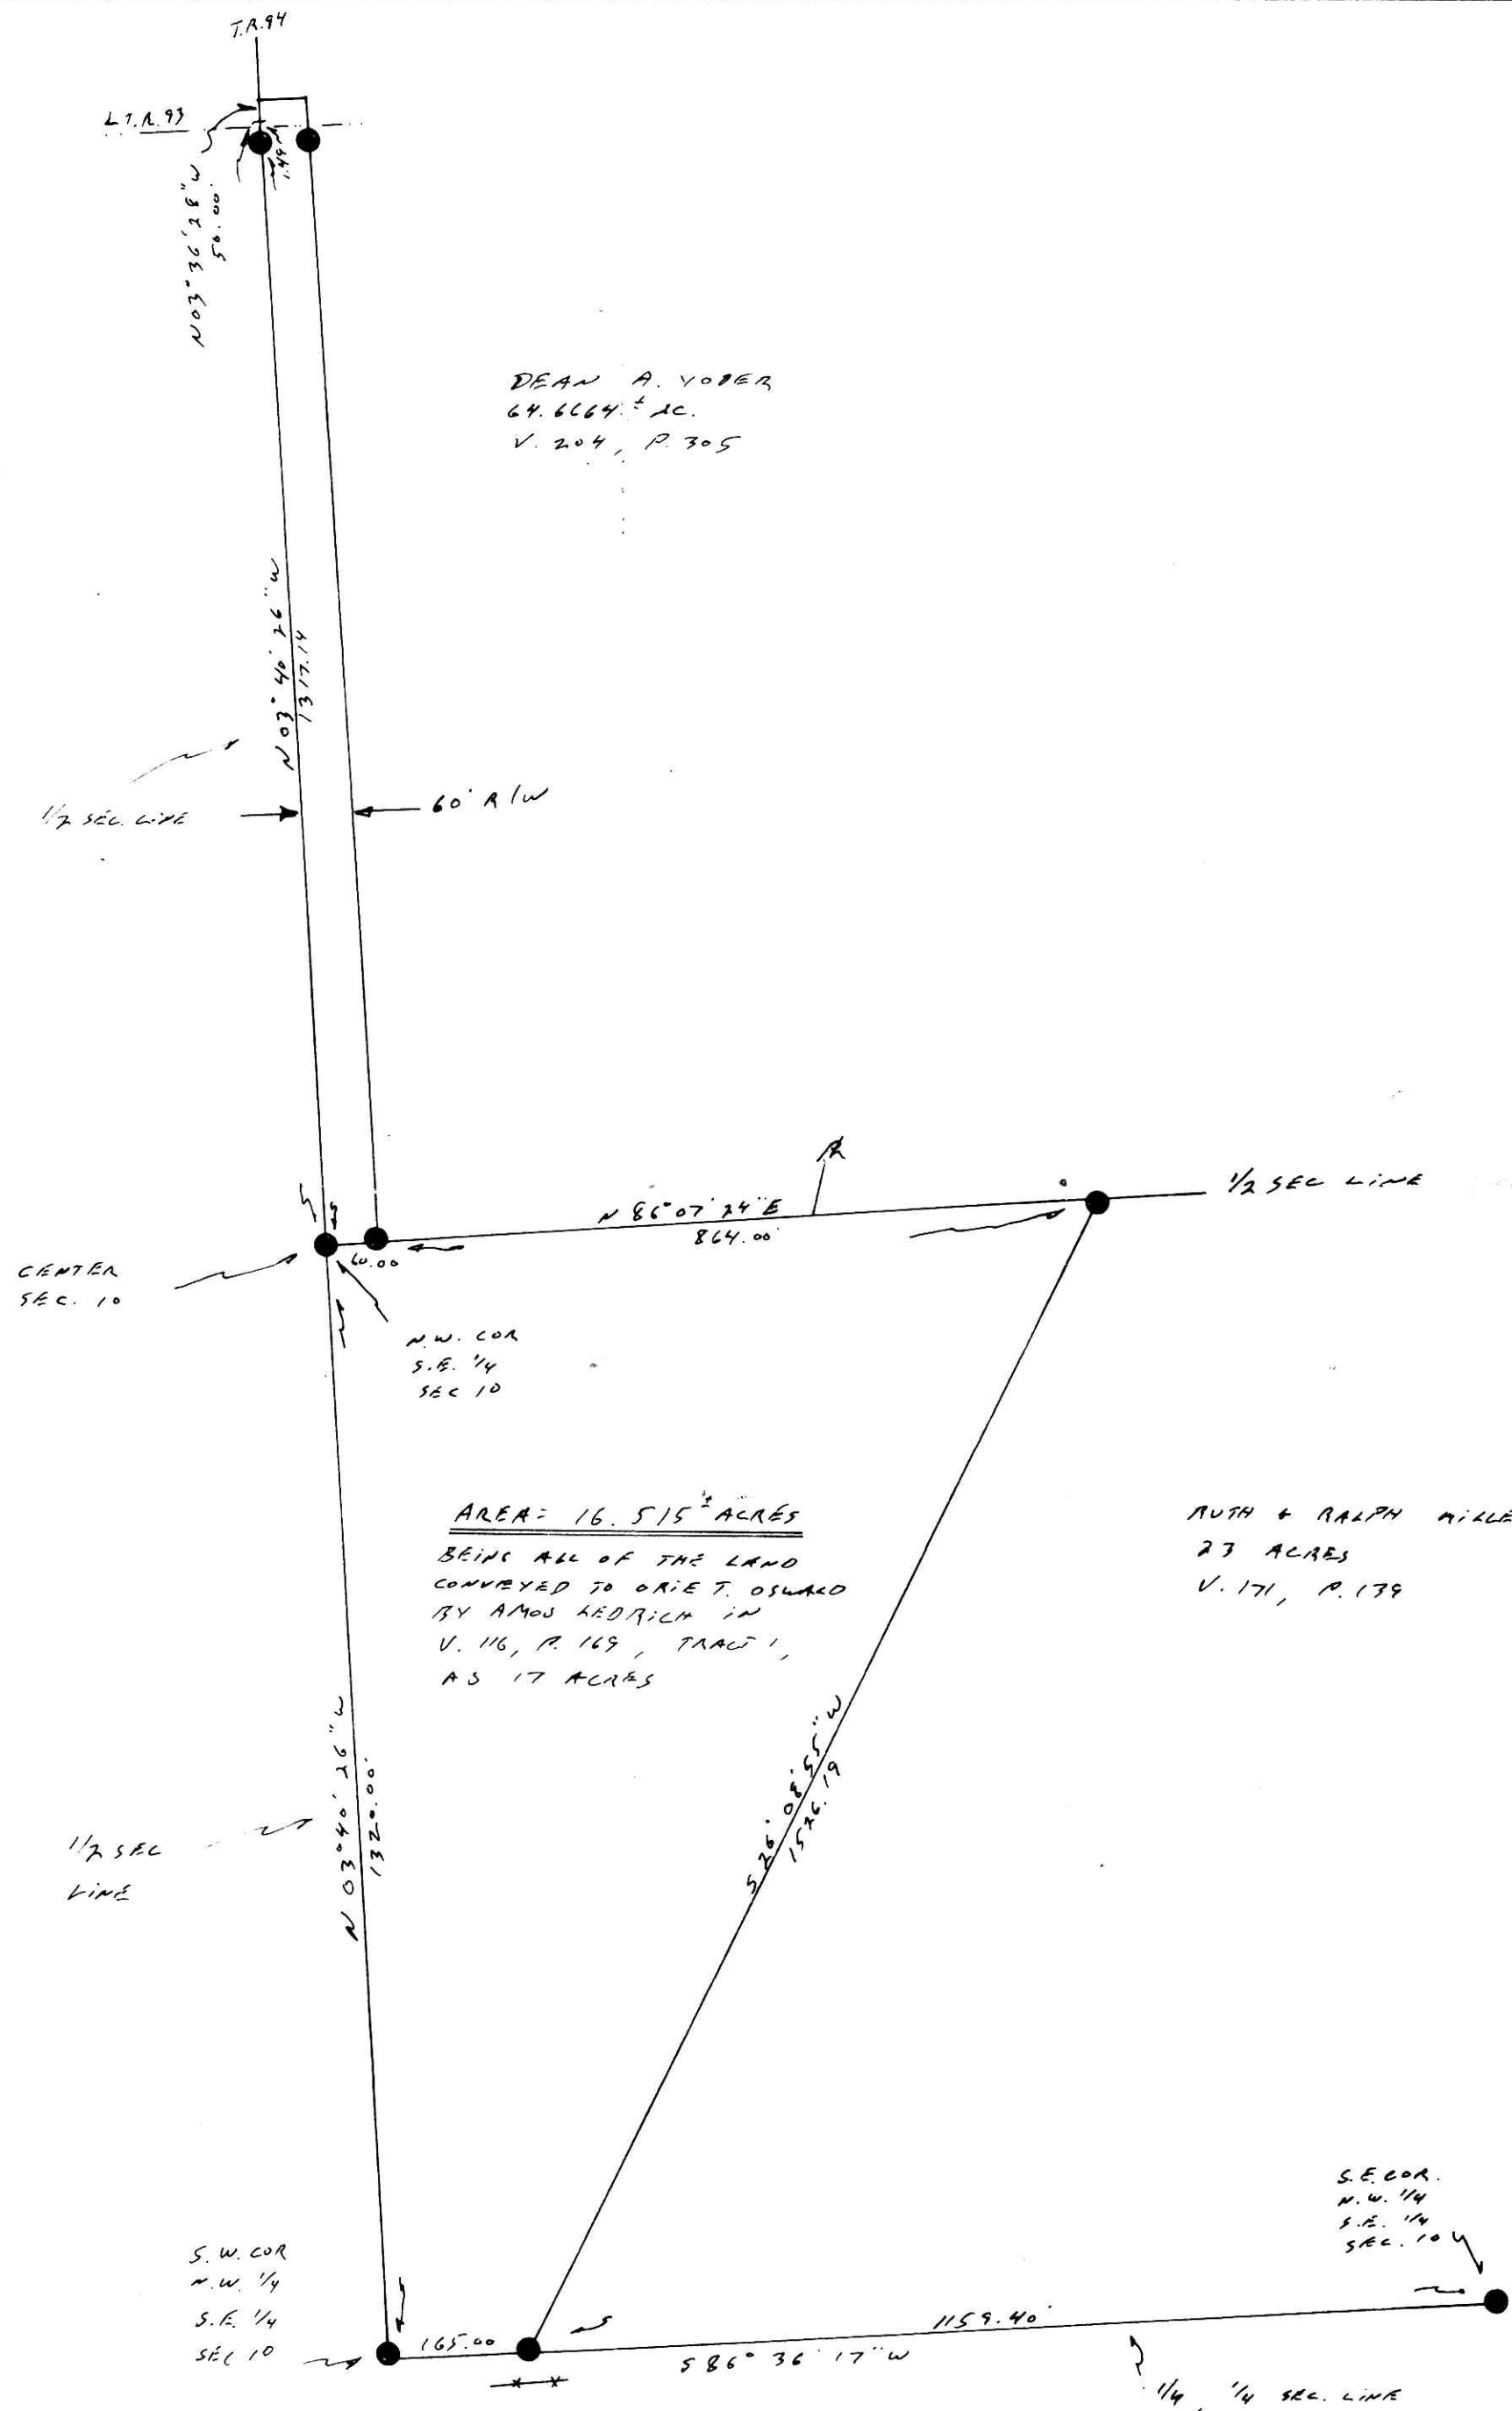 T.R.94
L T.R.93
N 03° 36' 28" W
50.00'
DEAN A. YODER
64.6664 ± AC.
V. 204, P. 305
N 03° 40' 26" W
1317.14
1/2 SEC. LINE
60' R/W
N 86° 07' 24" E
864.00'
1/2 SEC LINE
60.00
CENTER
SEC. 10
N.W. COR
S.E. 1/4
SEC 10
AREA = 16.515 ± ACRES
BEING ALL OF THE LAND
CONVEYED TO ORIE T. OSWALD
BY AMOS LEDRICH IN
V. 116, P. 169, TRACT 1,
AS 17 ACRES
RUTH & RALPH MILLE
23 ACRES
V. 171, P. 139
N 03° 40' 26" W
1320.00'
S 26° 08' 55" W
1526.19
1/2 SEC
LINE
S.E. COR.
N.W. 1/4
S.E. 1/4
SEC. 10
S.W. COR
N.W. 1/4
S.E. 1/4
SEC 10
165.00
1159.40'
S 86° 36' 17" W
1/4, 1/4 SEC. LINE